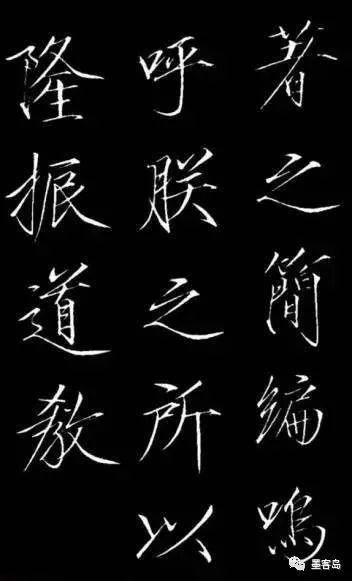 著之簡編嗚
呼朕之所以
隆振道教
墨客岛